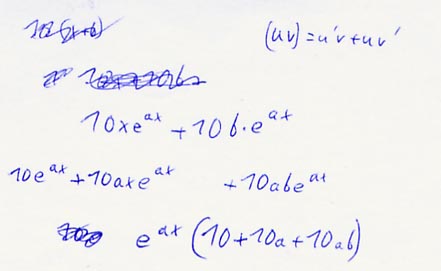 (uv)=u'v+uv'
10xe^ax + 10b·e^ax
10e^ax+10axe^ax +10abe^ax
e^ax (10+10a+10ab)